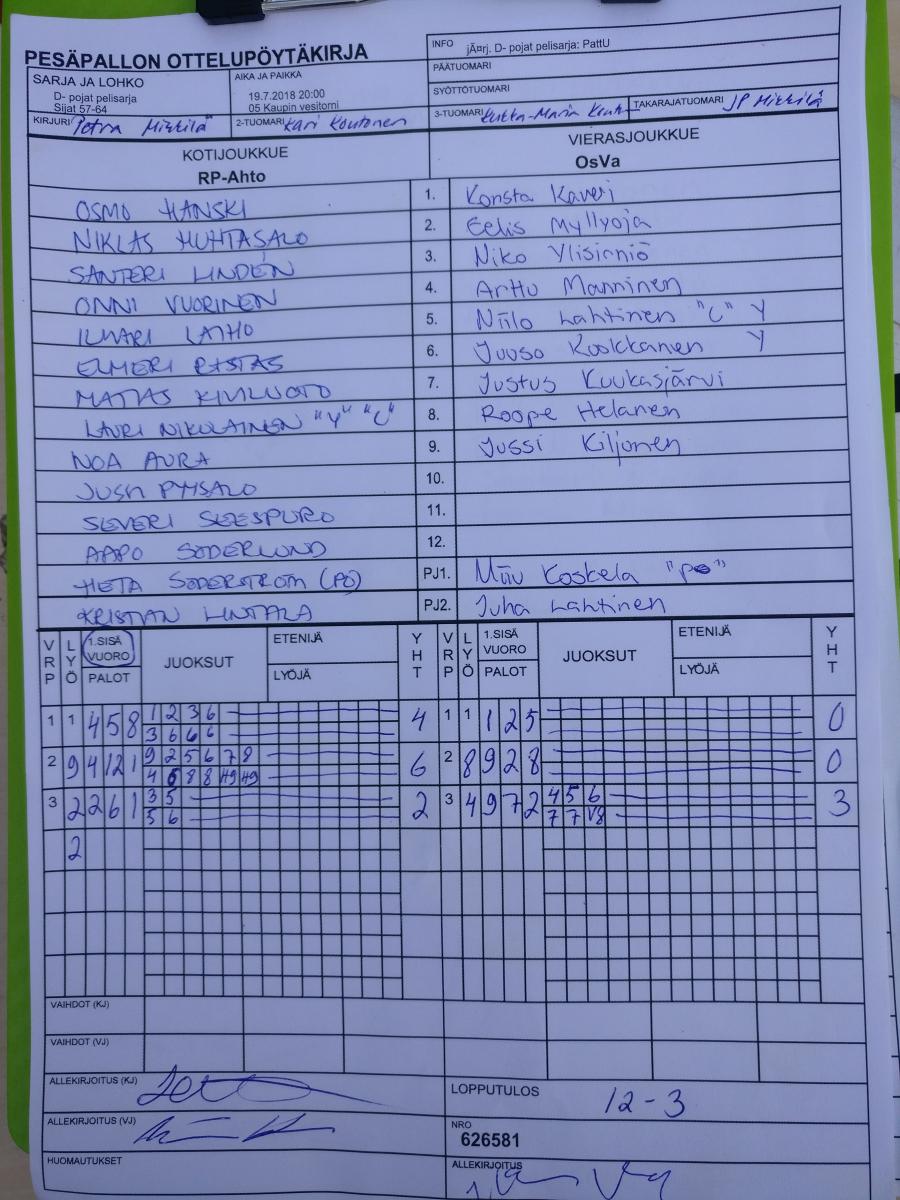 PESÄPALLON OTTELUPÖYTÄKIRJA
INFO jÃ¤rj. D- pojat pelisarja: PattU
SARJA JA LOHKO
D- pojat pelisarja
Sijat 57-64
AIKA JA PAIKKA
19.7.2018 20:00
05 Kaupin vesitorni
PÄÄTUOMARI
SYÖTTÖTUOMARI
KIRJURI Petra Mikkilä
2-TUOMARI Kari Koutonen
3-TUOMARI Kukka-Maria
TAKARAJATUOMARI JP Mikkilä
KOTIJOUKKUE
RP-Ahto
VIERASJOUKKUE
OsVa
OSMO HANSKI 1. Konsta Kaveri
NIKLAS HUHTASALO 2. Eelis Myllyoja
SANTERI LINDÉN 3. Niko Ylisirniö
ONNI VUORINEN 4. Arttu Manninen
ILMARI LAIHO 5. Niilo Lahtinen "C" Y
ELMERI RASTAS 6. Juuso Koskkanen Y
MATIAS KIVILUOTO 7. Justus Kuukasjärvi
LAURI NIKULAINEN "Y" "C" 8. Roope Helanen
NOA AURA 9. Jussi Kiljonen
JUSSI PYYSALO 10.
SEVERI SEESPURO 11.
AAPO SÖDERLUND 12.
HETA SÖDERSTRÖM (PJ) PJ1. Koskela
KRISTIAN LINTALA PJ2. Juha Lahtinen
VRP LYÖ 1.SISÄ VUORO PALOT JUOKSUT ETENIJÄ LYÖJÄ YHT VRP LYÖ 1.SISÄ VUORO PALOT JUOKSUT ETENIJÄ LYÖJÄ YHT
1 1 4 5 8 1 2 3 6 4 1 1 1 2 5 0
3 6 6 6
2 9 4 12 1 9 2 5 6 7 8 6 2 8 9 2 8 0
4 6 8 8 H9 H9
3 2 2 6 1 3 5 2 3 4 9 7 2 4 5 6 3
5 6 7 7 V8
2
VAIHDOT (KJ)
VAIHDOT (VJ)
ALLEKIRJOITUS (KJ)
LOPPUTULOS 12-3
ALLEKIRJOITUS (VJ)
NRO
626581
HUOMAUTUKSET
ALLEKIRJOITUS